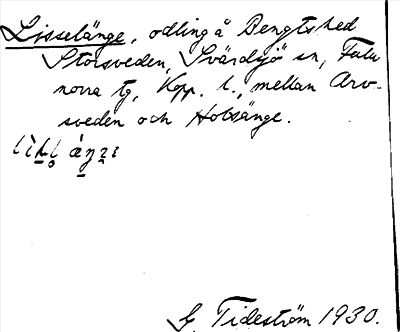 Lisselänge, odling å Bengtshed
Storsveden, Svärdsjö sn, Falu
norra tg, Kopp. l., mellan Arv-
sveden och Holsänge.
G. Tideström 1930.